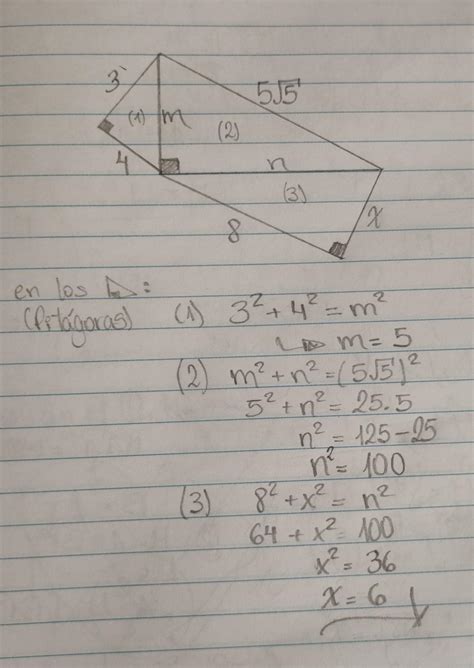 3
(1)
m
5√5
(2)
4
n
(3)
8
x
en los ▷:
(Pitágoras)
(1) 3² + 4² = m²
m = 5
(2) m² + n² = (5√5)²
5² + n² = 25.5
n² = 125 - 25
n² = 100
(3) 8² + x² = n²
64 + x² = 100
x² = 36
x = 6